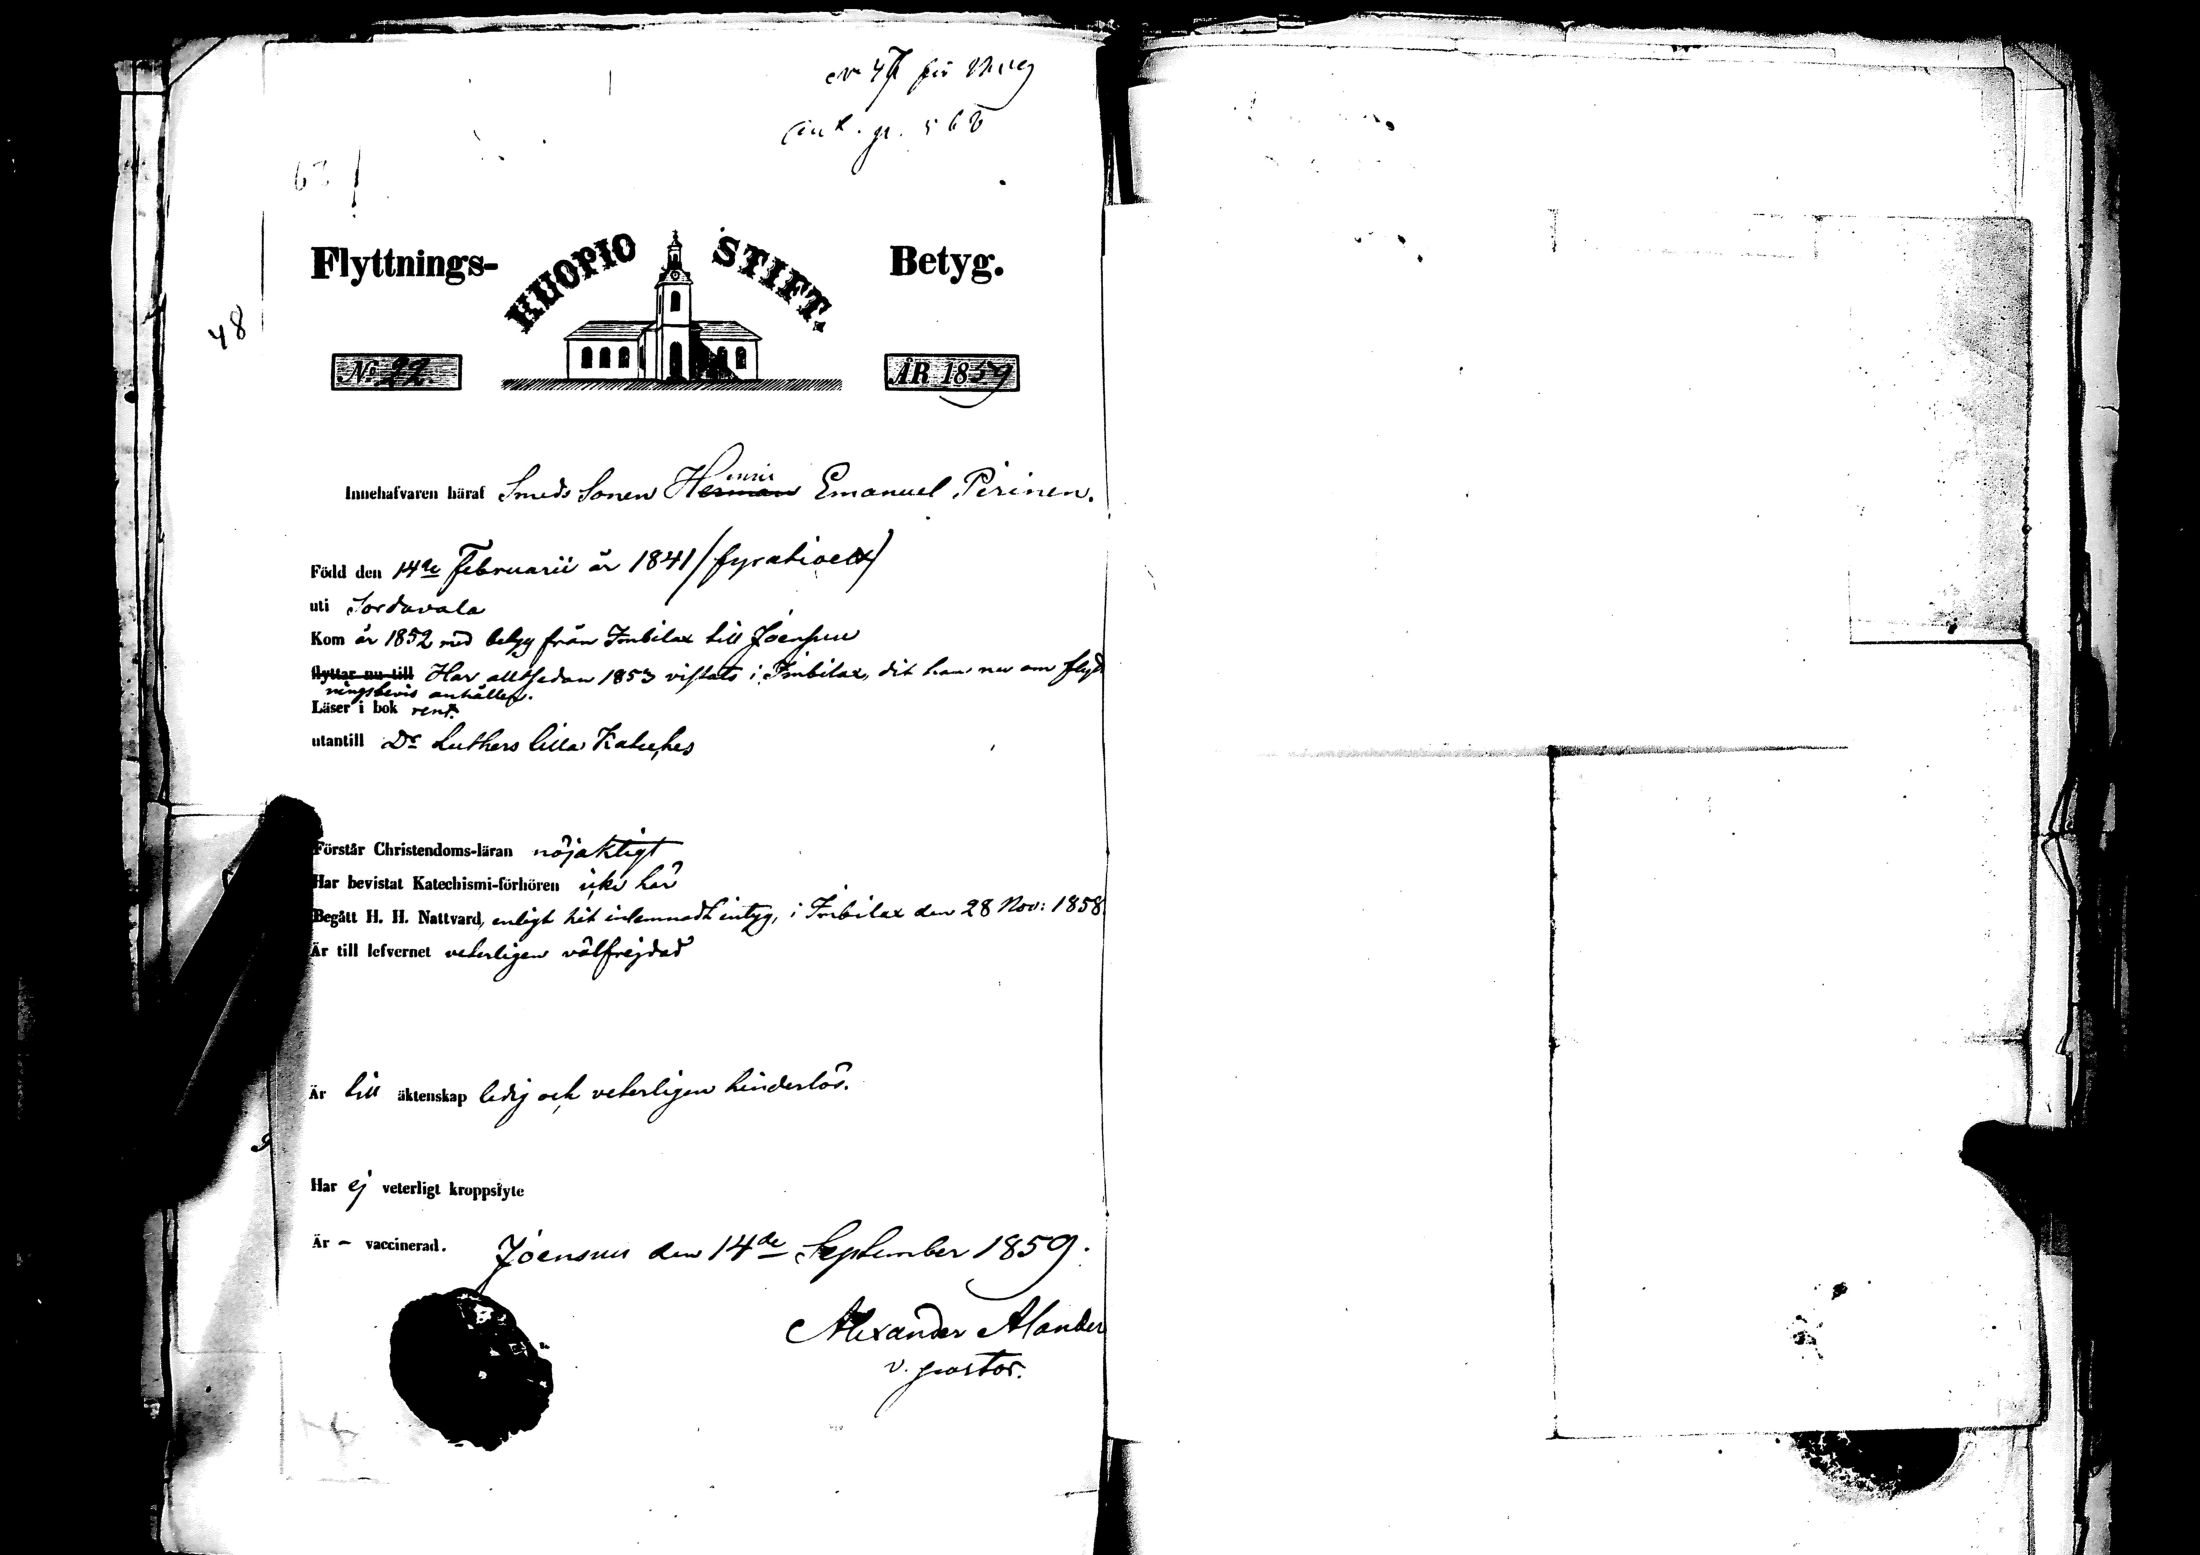 48
Flyttnings- KUOPIO STIFT. Betyg.
No 22. ÅR 1859
Innehafvaren häraf Smeds Sonen Henric Herman Emanuel Pirinen.
Född den 14de Februarii år 1841 (fyratioett)
uti Sordavala
Kom år 1852 med betyg från Imbilax till Joensuu
flyttar nu till Har alltsedan 1853 vistats i Imbilax, dit han nu om flytt
ningsbevis anhåller.
Läser i bok rent.
utantill Dr Luthers lilla Kateches
Förstår Christendoms-läran nöjaktigt
Har bevistat Katechismi-förhören icke här
Begått H. H. Nattvard, enligt hit inlemnadt intyg, i Imbilax den 28 Nov: 1858
Är till lefvernet veterligen välfrejdad
Är till äktenskap ledig och veterligen hinderlös.
Har ej veterligt kroppslyte
Är – vaccinerad. Joensuu den 14de September 1859.
Alexander Alander
v. pastor.